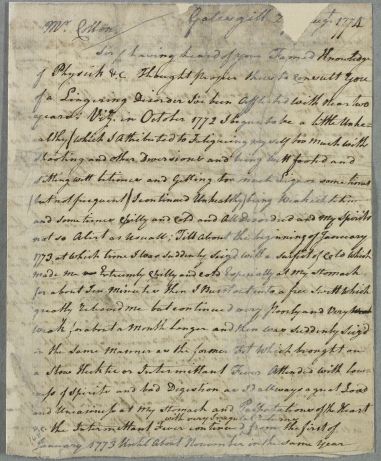 Galesgill 2 ugt. 1774
Mr. Cotton
Sir / having heard of your Famed Knowledge
of Physick &c. Thought proper there to consult You
of a Lingering Disorder I've been Afflicted with near two
years: Viz. in October 1772 I began to be a little Unhe-
althy / which I Attributed to Fatigueing my self too much with
Shooting and other Diversions and being wett footed and
sitting wett betimes and Getting too much Liquor sometimes
(but not frequent) I continued Unhealthy being Weakish
and sometimes Chilly and Cold and all Disordered and my Spirits
not so Alert as Usuall, Till About the beginning of January
1773 at which time I was Suddenly Seized with a Surfet of Cold which
made me Extremely Chilly and cold Especially at my Stomach
for about Ten Minutes then I Burst out into a free Swett Which
greatly Relieved me but continued very Poorly and Very
Weak for about a Month longer and then was Suddenly Seiz'd
in the Same Manner as the former Fit Which brought on
a Slow Hecktic or Intermittant Fever Attended with low
ness of Spirits and bad Digestion as I'd always a great Load
and Uneasiness at my Stomach and Palpitations of the Heart
with very Irregular
&c the Intermittant Fever continued from the first of
January 1773 Until About November in the Same Year